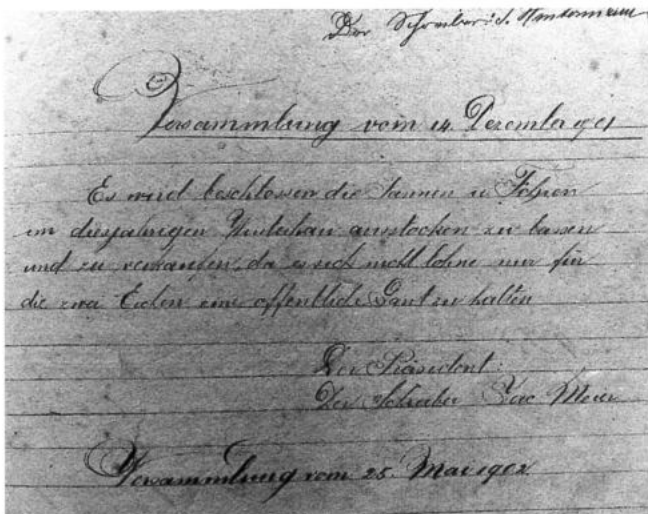 Der Schreiber: J.
Versammlung vom 14. Dezember 1901
Es wird beschlossen die Tannen u. Föhren
im diesjährigen Winterhau ausstocken zu lassen
und zu verkaufen, da es sich nicht lohne nur für
die zwei Eichen eine öffentliche Gant zu halten
Der Präsident:
Der Schreiber Jac Meier
Versammlung vom 25. Mai 1902.